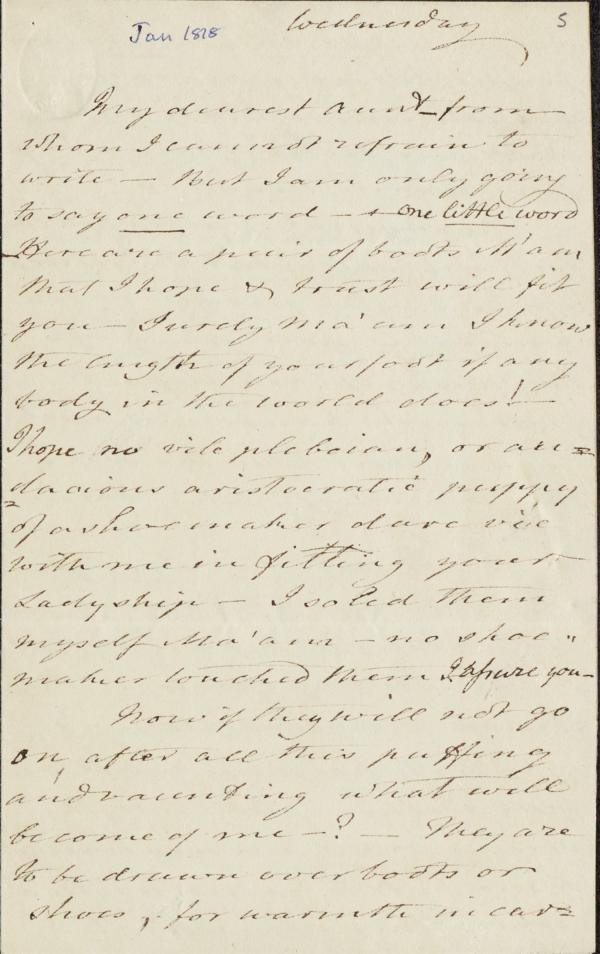 Wednesday
Jan 1818
5
My dearest Aunt from
whom I cannot refrain to
write — But I am only going
to say one word — + one little word
Here are a pair of boots M'am
that I hope & trust will fit
you — Surely Ma'am I know
the length of your foot if any
body in the world does! —
I hope no vile plebeian, or au=
=dacious aristocratic puppy
of a shoemaker dare vie
with me in fitting your
Ladyship — I soled them
myself Ma'am — no shoe"
maker touched them I assure you —
Now if they will not go
on after all this puffing
and vaunting what will
become of me — ? — They are
to be drawn over boots or
shoes, for warmth in car=